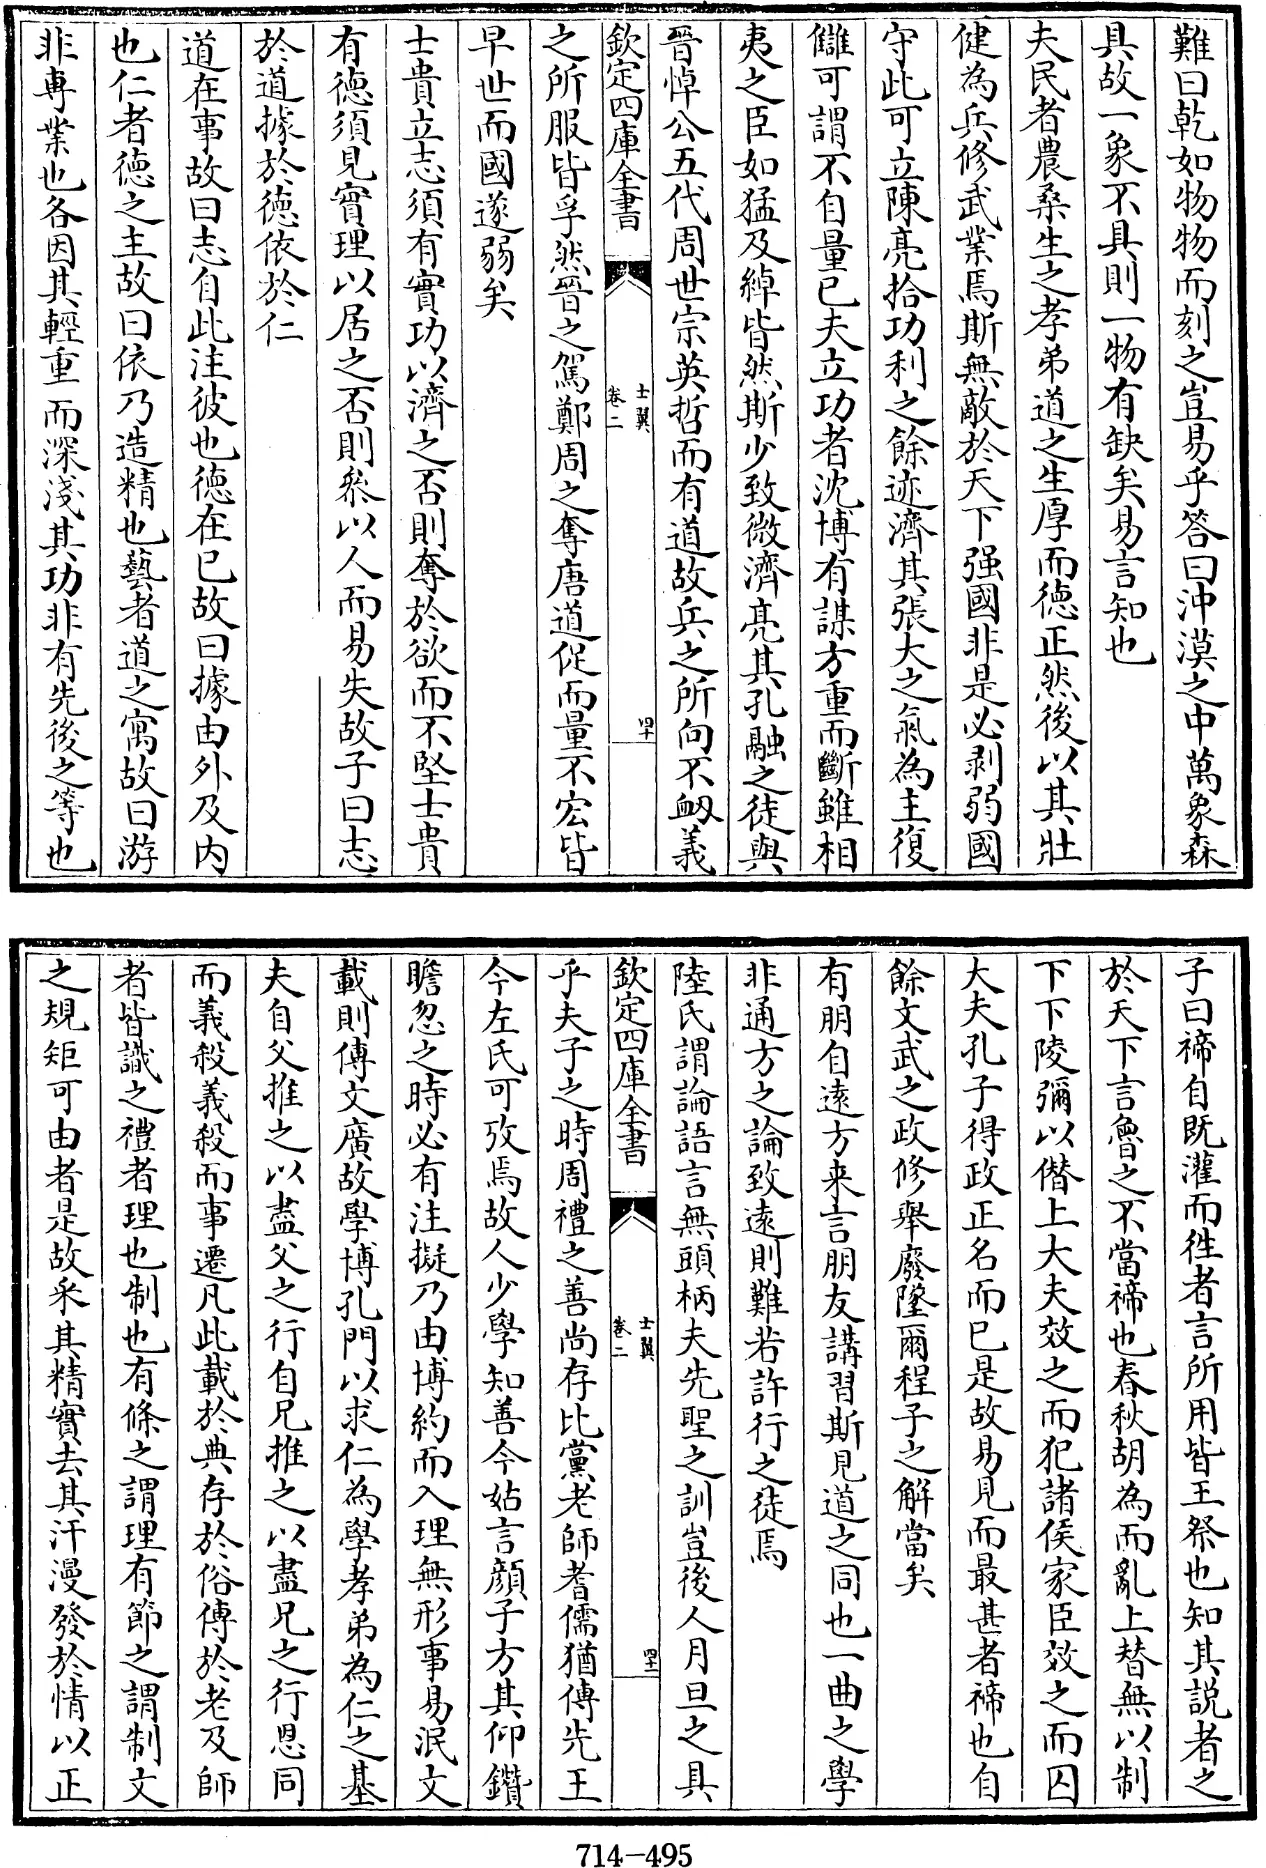 難曰乾如物物而刻之豈易乎答曰沖漠之中萬象森
具故一象不具則一物有缺矣易言知也
夫民者農桑生之孝弟道之生厚而德正然後以其壯
健為兵修武業焉斯無敵於天下强國非是必剥弱國
守此可立陳亮拾功利之餘迹濟其張大之氣為主復
讎可謂不自量已夫立功者沈博有謀方重而斷雖相
夷之臣如猛及綽皆然斯少致微濟亮其孔融之徒與
晉悼公五代周世宗英哲而有道故兵之所向不衂義
欽定四庫全書
士翼
卷二
四十
之所服皆孚然晉之駕鄭周之奪唐道促而量不宏皆
早世而國遂弱矣
士貴立志須有實功以濟之否則奪於欲而不堅士貴
有德須見實理以居之否則叅以人而易失故子曰志
於道據於德依於仁
道在事故曰志自此注彼也德在已故曰據由外及内
也仁者德之主故曰依乃造精也藝者道之寓故曰游
非専業也各因其輕重而深淺其功非有先後之等也
子曰禘自既灌而徃者言所用皆王祭也知其説者之
於天下言魯之不當禘也春秋胡為而亂上替無以制
下下陵彌以僭上大夫效之而犯諸侯家臣效之而囚
大夫孔子得政正名而已是故易見而最甚者禘也自
餘文武之政修舉廢墜爾程子之解當矣
有朋自遠方来言朋友講習斯見道之同也一曲之學
非通方之論致遠則難若許行之徒焉
陸氏謂論語言無頭柄夫先聖之訓豈後人月旦之具
欽定四庫全書
士翼
卷二
四十一
乎夫子之時周禮之善尚存比黨老師耆儒猶傳先王
今左氏可攷焉故人少學知善今姑言顔子方其仰鑽
瞻忽之時必有注擬乃由博約而入理無形事易泯文
載則傳文廣故學博孔門以求仁為學孝弟為仁之基
夫自父推之以盡父之行自兄推之以盡兄之行恩同
而義殺義殺而事遷凡此載於典存於俗傳於老及師
者皆識之禮者理也制也有條之謂理有節之謂制文
之規矩可由者是故采其精實去其汗漫發於情以正
714-495